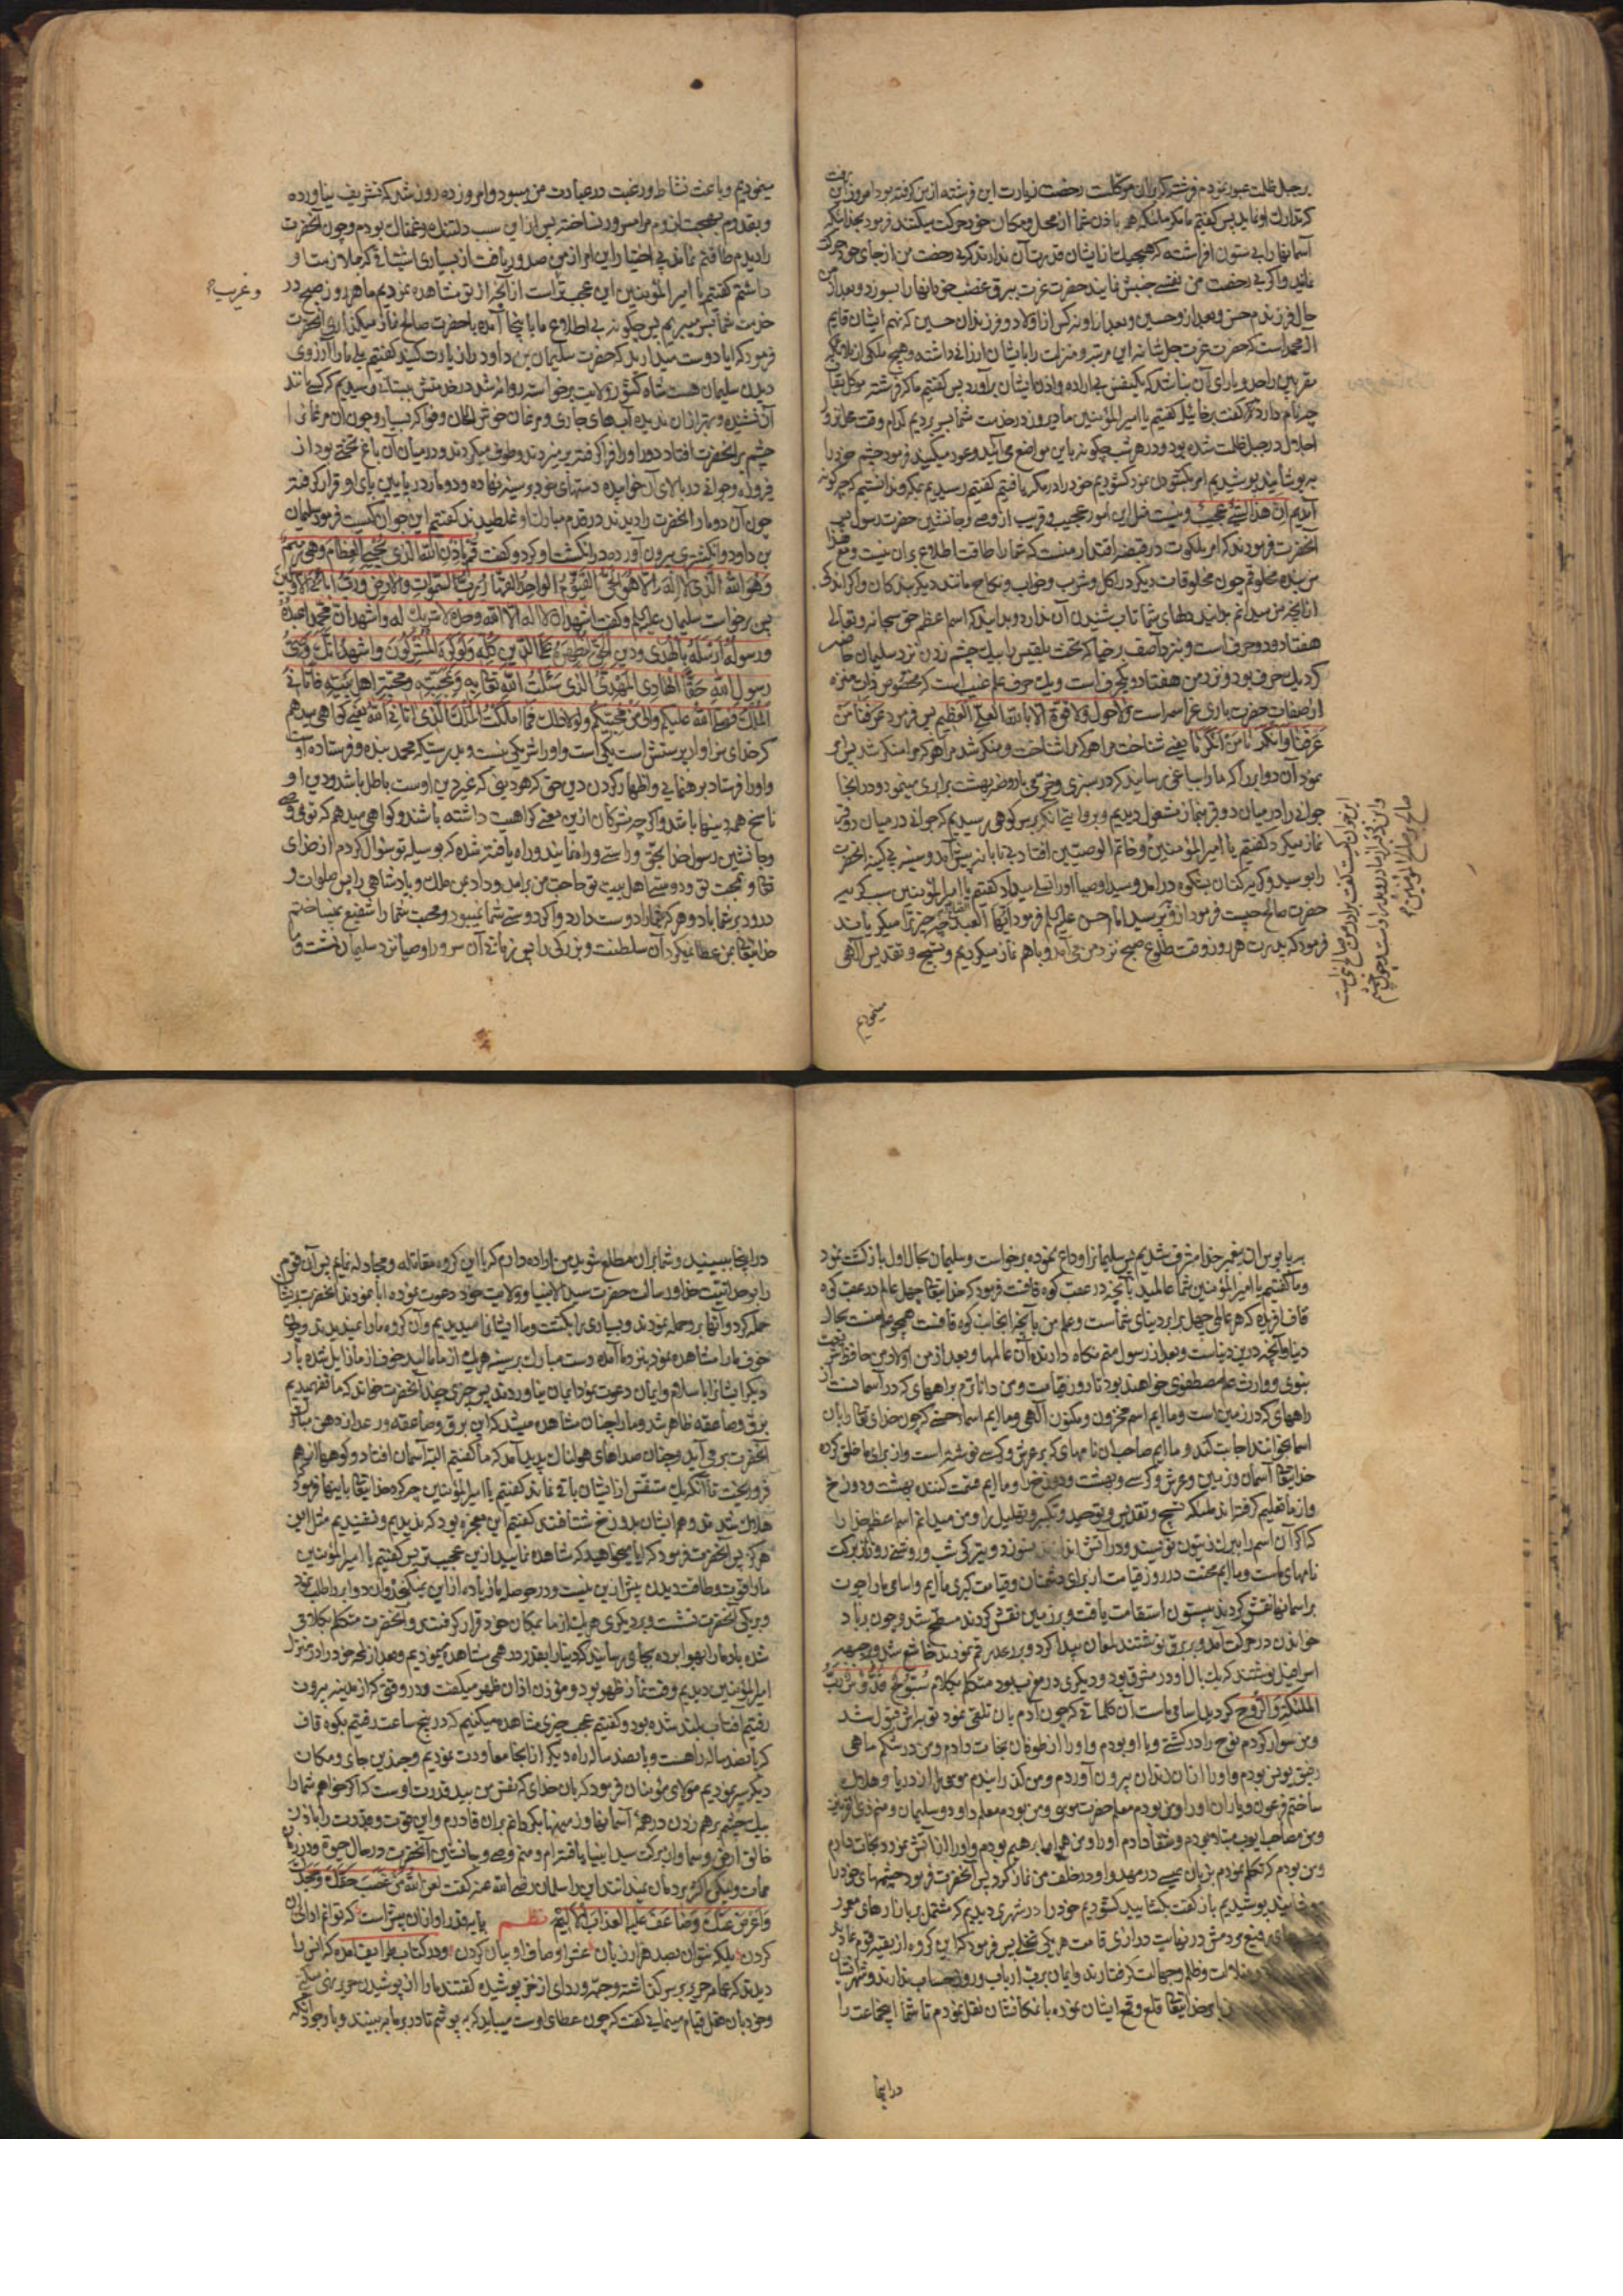 بر جبل ظلمت عبور نمودم فرشته که بران موکلست رخصت زیارت این فرشته از من گرفته بود امروز این رفت
که تدارک او نماید پس گفتیم مگر ملئکه همه باذن شما از محل و مکان خود حرکت میکنند فرمود بخدائیکه
آسمانها را بی ستون افراشته که هیچیک از ایشان قدرت آن ندارند که بی رخصت من از جای خود حرکت
نمایند و اگر بی رخصت من نفسی جنبش نمایند حضرت عزت ببرق غضب خود آنها را بسوزد و بعد از من
حال فرزندم حسن و بعد از و حسین و بعد از او نه کس از اولاد و فرزندان حسین که نهم ایشان قایم
آل محمد است که حضرت عزت جل شانه این مرتبه و منزلت را بایشان ارزانی داشته و هیچ ملکی از ملائکه
مقربین را حد و یارای آن نباشد که یکنفس بی اراده و اذن ایشان برآورد پس گفتیم ملکه فرشته موکل بقاف
چه نام دارد گفت برخائیل گفتیم یا امیرالمؤمنین ما دیروز در خدمت شما بسر بردیم کدام وقت محل نزول
اجلال در جبل ظلمت شده بود و در هر شب چگونه باین مواضع می آئید و عود میکنید فرمود چشم خود را
بپوشانید پوشیدیم امر بگشودن نمود گشودیم خود را در مکه یافتیم گفتیم رسیدیم بمکه و ندانستیم که چگونه
آمدیم ان هذا لشئ عجیب و نیست مثل این امور عجیب و غریب از وصی و جانشین حضرت رسول پس
آنحضرت فرمودند که امر ملکوت در قبضه اقتدار منست که شما را طاقت اطلاع بران نیست و مع هذا
من بنده مخلوقم چون مخلوقات دیگر در اکل و شرب و خواب و نکاح مانند دیگر بندگان و اگر اندکی
از آنچه من میدانم بدانید دلهای شما تاب شنیدن آن ندارد و بدانید که اسم اعظم حق سبحانه و تعالی
هفتاد و دو حرف است و نزد آصف برخیا که تخت بلقیس را بیک چشم زدن نزد سلیمان حاضر
کرد یک حرف بود و نزد من هفتاد و یکحرف است و یک حرف علم غیب است که مخصوص ذات منزه
از صفات حضرت باری عز اسمه است و لا حول و لا قوة الا بالله العلی العظیم پس فرمود عرفنا من
عرفنا و انکرنا من انکرنا یعنی شناخت مرا هر که مرا شناخت و منکر شد مرا هر که مرا منکر شد پس امر
نمود آن دو ابر را که ما را بباغی رسانید که در سبزی و خرمی با روضه بهشت برابری مینمود و در انجا
جوانی را در میان دو قبر بنماز مشغول دیدیم و بروایتی آنکه بر سر کوهی رسیدیم که جوانی در میان دو قبر
نماز میکرد گفتیم یا امیرالمؤمنین و خاتم الوصیین افتاد بی تابانه پیش آمد و سینه بی کینه آنحضرت
را بوسید و گریه کنان بشکوه درآمد و سید اوصیا او را تسلی میداد گفتیم یا امیرالمؤمنین سبب گریه
حضرت صالح چیست فرمود ازو بپرسید امام حسن علیه السلام فرمود ایها العبد الصالح چه چیز ترا میگریاند
فرمود که پدرت هر روز وقت طلوع صبح نزد من می آمد و با هم نماز میکردیم و تسبیح و تقدیس الهی
این جوان کیست گفت برادر من صالح نبی است
و این دو قبر از مادر و پدر اوست و چون چشم
صالح بر صالح المؤمنین
مینمودیم
مینمودیم و باعث نشاط و رغبت در عبادت من میبود و امروز ده روز شد که تشریف نیاورده
و بقدوم بهجت لزوم مرا مسرور نساخته پس از این سبب دلتنک و غمناک بودم و چون آنحضرت
را دیدم طاقتم نماند بی اختیار این امر از من صدور یافت از بسیاری اشتیاقی که ملازمت او
داشتم گفتیم یا امیرالمؤمنین این عجبتر است از آنچه از تو مشاهده نمودیم ما هر روز صبح در
و غریب
خدمت شما بسر میبریم پس چگونه بی اطلاع ما باینجا آمده با حضرت صالح نماز میگذاری آنحضرت
فرمود که آیا دوست میدارید که حضرت سلیمان بن داود را زیارت کنید گفتیم بلی ما را آرزوی
دیدن سلیمان هست شاه کشور ولایت برخواسته روانه شد در خدمتش ببستانی رسیدیم که کسی مانند
آن نشنیده و بهتر از ان ندیده آب های جاری و مرغان خوش الحان و فواکه بسیار و چون آن مرغان را
چشم بر آنحضرت افتاد دور او را فرا گرفته پر میزدند و طوف میکردند و در میان آن باغ تختی بود از
فیروزه و جوانی در بالای آن خوابیده دستهای خود بر سینه نهاده و دو مار در پایین پای او قرار گرفته
چون آن دو مار آنحضرت را دیدند در قدم مبارک او غلطیدند گفتیم این جوان کیست فرمود سلیمان
بن داود و انگشتری بیرون آورده در انگشت او کرد و گفت قم باذن الله الذی یحیی العظام و هی رمیم
و هو الله الذی لا اله الا هو الحی القیوم الواحد القهار رب السموات و الارض و رب ابائنا الاولین
پس برخواست سلیمان علیه السلام و گفت اشهد ان لا اله الا الله وحده لا شریک له و اشهد ان محمدا عبده
و رسوله ارسله بالهدی و دین الحق لیظهره علی الدین کله و لو کره المشرکون و اشهد انک وصی
رسول الله حقا الهادی المهدی الذی سئلت الله تعالی به و بمحبته و محبة اهل بیته فاتانی
الملک
که خدای سزاوار پرستش است یکی است و او را شریکی نیست و بدرستیکه محمد بنده و فرستاده اوست
و او را فرستاد برهنمایی و اظهار کردن دین حق که هر دینی که غیر دین اوست باطل باشد و دین او
ناسخ همه دینها باشد و اگر چه مشرکان ازین معنی کراهیت داشته باشند و گواهی میدهم که توئی وصی
و جانشین رسول خدا بحق و راستی و راه نمایند و راه یافته شده که بوسیله تو سؤال کردم از خدای
تعالی و بمحبت تو و دوستی اهل بیت تو حاجت من برآمد و داد بمن ملک و پادشاهی را پس صلوات و
درود بر شما باد و هر که شما را دوست دارد و اگر دوستی شما نمیبود و محبت شما را شفیع نمیساختم
خدایتعالی بمن عطا نمیکرد آن سلطنت و بزرگی را پس زمانی آن سرور اوصیا نزد سلیمان نشست و ما
بر پا بوس آن پیغمبر خدا مشرف شدیم پس سلیمانرا وداع نموده برخواست و سلیمان بحال اول بازگشت نمود
و ما گفتیم یا امیرالمؤمنین شما عالمید بآنچه در عقب کوه قافست فرمود که خدایتعالی چهل عالم در عقب کوه
قاف آفریده که هر عالمی چهل برابر دنیای شماست و علم من بآنچه از آنجانب کوه قافست همچو علم منست بحال
دنیا و آنچه درین دنیاست و بعد از رسول منم نگاه دارنده آن عالمها و بعد از من اولاد من حافظ شریعت
نبوی و وارث علم مصطفوی خواهند بود تا روز قیامت و من داناترم براههای که در آسمانست از
راههای که در زمین است و ماایم اسم مخزون و مکنون الهی و ماایم اسماء حسنی که چون خدای تعالی را بان
اسما بخوانند اجابت کند و ماایم صاحب آن نامهای که بر عرش و کرسی نوشته است و از برای ما خلق کرده
خدایتعالی آسمان و زمین و عرش و کرسی و بهشت و دوزخ را و ماایم قسمت کننده بهشت و دوزخ
و از ما تعلیم گرفتاند ملئکه تسبیح و تقدیس و توحید و تکبیر و تهلیل را و من میدانم اسم اعظم خدا را
که اگر آن اسم را ببرک زیتون نویسند و در آتش اندازند نسوزد و بتیرگی شب و روشنی روز از برکت
نامهای ماست و ماایم محنت در روز قیامت از برای دشمنان و قیامت کبری ماایم و اسامی ما را چون
بر آسمانها نقش کردند بیستون استقامت یافت و بر زمین نقش کردند مسطح شد و چون بر باد
خواندن در حرکت آمد و بر برق نوشتند لمعان پیدا کرد و بر رعد رقم نمودند خاشع شد و بر جبهه
اسرافیل نوشتند که یک بال او در مشرق بود و دیگری در مغرب بود متکلم بکلام سبوح قدوس رب
الملئکة و الروح گردید اسامی ماست آن کلماتی که چون آدم بان تلقی نمود توبه اش قبول شد
و من سوار کردم نوح را در کشتی و با او بودم و او را از طوفان نجات دادم و من در شکم ماهی
رفیق یونس بودم و او را از ان زندان بیرون آوردم و من گذرانیدم موسی را از دریا و هلاک
ساختم فرعون و یاران او را و من بودم معلم حضرت موسی و من بودم معلم داود و سلیمان و منم ذوالقرنین
و من مصاحب ایوب مبتلا بودم و شفا دادم او را و من همراه ابراهیم بودم و او را از آتش نمرود نجات دادم
و من بودم که تکلم نمودم بزبان عیسی در مهد و او در خلف من نماز کرد پس آنحضرت فرمود چشمهای خود را
بپوشانید پوشیدیم باز گفت بگشایید گشودیم خود را در شهری دیدیم که مشتمل بر بازارهای معمور
رفیع مردمش در نهایت درازی قامت هر یکی نخلی پس فرمود که این گروه از بقیه قوم عاد ند
ضلالت و ظلم و جهالت گرفتارند و ایمان برب ارباب و روز حساب ندارند و شهر ایشان
بامر خدایتعالی قلع و قمع ایشان نموده بامکانشان نقل نمودم تا شما این جماعت را
دراینجا
در اینجا ببینید و شما بر ان مطلع شوید من اراده دارم که با این گروه مقاتله و مجادله نمایم پس آن قوم
را بوحدانیت خدا و رسالت حضرت سید الانبیا و ولایت خود دعوت نموده ابا نمودند آنحضرت بر ایشان
حمله کرد و آنها بر و حمله نمودند و بسیاری را بکشت و ما ایشانرا میدیدیم و آن گروه ما را نمیدیدند و چون
خوف ما را مشاهده نمود بنزد ما آمده دست مبارک بر سینه هر یک از ما مالید خوف از ما زایل شده بار
دیگر ایشانرا باسلام و ایمان دعوت نمود ایمان نیاوردند پس چیزی چند آنحضرت خواند که ما نفهمیدیم
برق و صاعقه ظاهر شد و ما را چنان مشاهده میشد که این برق و صاعقه و رعد از دهن مبارک
آنحضرت بر می آید و چنان صداهای هولناک پدید آمد که ما گفتیم البته آسمان افتاد و کوهها از هم
فرو ریخت تا آنکه یک متنفس از ایشان باقی نماند گفتیم یا امیرالمؤمنین چه کرد خدایتعالی باینها فرمود
هلاک شدند و همه ایشان بدوزخ شتافتند گفتیم این معجزه بود که ندیدیم و نشنیدیم مثل این
هرگز پس آنحضرت فرمود که آیا میخواهید که مشاهده نمایید ازین عجیب تر پس گفتیم یا امیرالمؤمنین
ما را قوت و طاقت دیدن پیش ازین نیست و در حوصله ما زیاده از این نمیگنجد و آن دو ابر را طلب نمود
و بر یکی آنحضرت نشست و بر دیگری هر یک از ما بمکان خود قرار گرفته و آنحضرت متکلم بکلامی
شده باد ما را بهوا برده بجای رسانید که دنیا را بقدر درهمی مشاهده مینمودیم و بعد از لمحه خود را در منزل
امیرالمؤمنین دیدیم وقت نماز ظهر بود و مؤذن اذان ظهر میگفت و در وقتی که از مدینه بیرون
رفتیم آفتاب بلند شده بود و گفتیم عجب چیزی مشاهده میکنیم که در پنج ساعت رفتیم بکوه قاف
که پانصد ساله راهست و پانصد ساله راه دیگر از انجا معاودت نمودیم و چندین جای و مکان
دیگر سیر نمودیم مولای مؤمنان فرمود که بان خدای که نفس من بید قدرت اوست که اگر خواهم شما را
بیک چشم بر هم زدن در همه آسمانها و زمینها بگردانم بران قادرم و این قوت و قدرت را باذن
خالق ارض و سما و از برکت سید انبیا یافته ام و منم وصی و جانشین آنحضرت در حال حیوة و در زمان
ممات ولیکن اکثر مردمان نمیدانند این را سلمان رضی الله عنه گفت لعن الله من غصب حقک و جحدک
و اعرض عنک و ضاعف علیه العذاب الالیم نظم پایه قدر او از ان بیش است که توانم ادای آن
کردن بلکه نتوان بصد هزار زبان عشر اوصاف او بیان کردن و در کتاب طرایف آمده که انس را
دیدند که عمامه حریر بر سر گذاشته و جبه و ردای از خز پوشیده گفتند ما را از پوشیدن حریر نهی میکنی
و خود بان عمل قیام مینمایی گفت که چون عطای اوست میباید که بپوشم تا در بر ما ببینند و با وجود آنکه